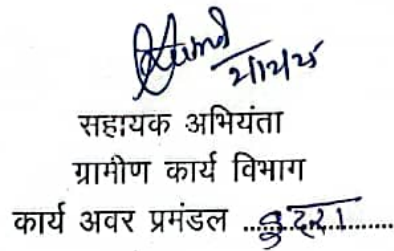 सहायक अभियंता
ग्रामीण कार्य विभाग
कार्य अवर प्रमंडल ..कुदरा..